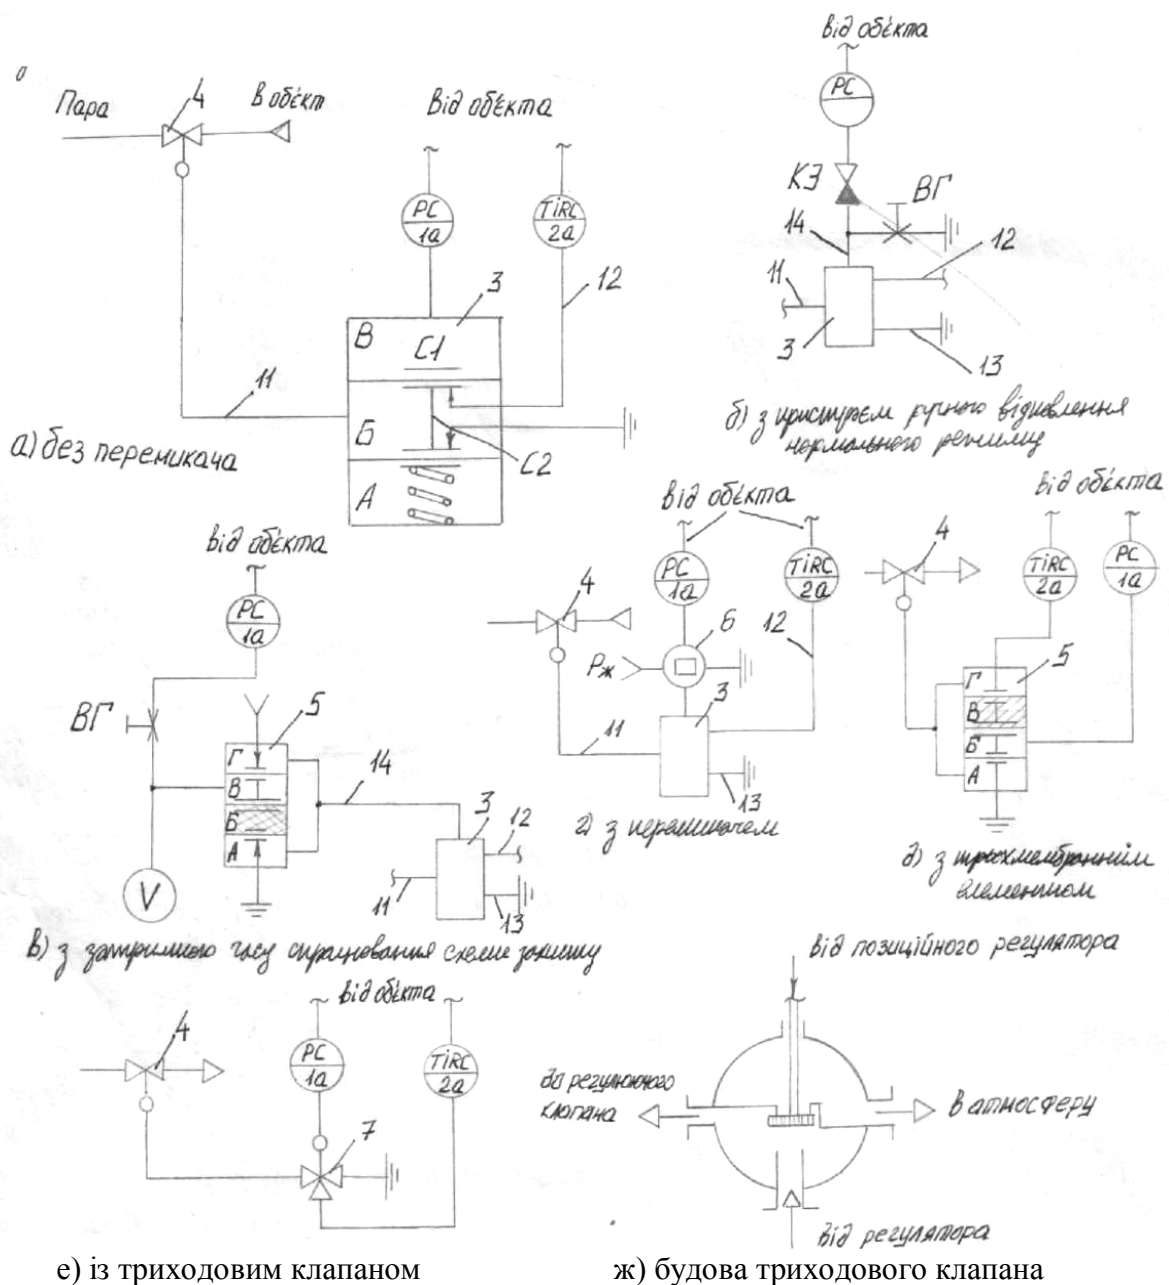 Пара
4
в обєкт
Від обєкта
PC
1а
TiRC
2а
3
12
В
С1
11
Б
С2
А
а) без перемикача
від обєкта
PC
КЭ
ВГ
14
12
11
3
13
б) з пристроєм ручного відновлення
нормального режиму
від обєкта
PC
1а
ВГ
5
Г
В
Б
А
14
3
12
11
13
V
в) з затримкою часу спрацювання схеми захисту
від обєкта
PC
1а
TiRC
2а
4
6
12
Рж
3
11
13
г) з перемикачем
від обєкта
4
TiRC
2а
PC
1а
5
Г
В
Б
А
д) з трьохмембранним
елементом
від обєкта
4
PC
1а
TiRC
2а
7
від позиційного регулятора
до регулюючого
клапана
в атмосферу
від регулятора
е) із триходовим клапаном
ж) будова триходового клапана